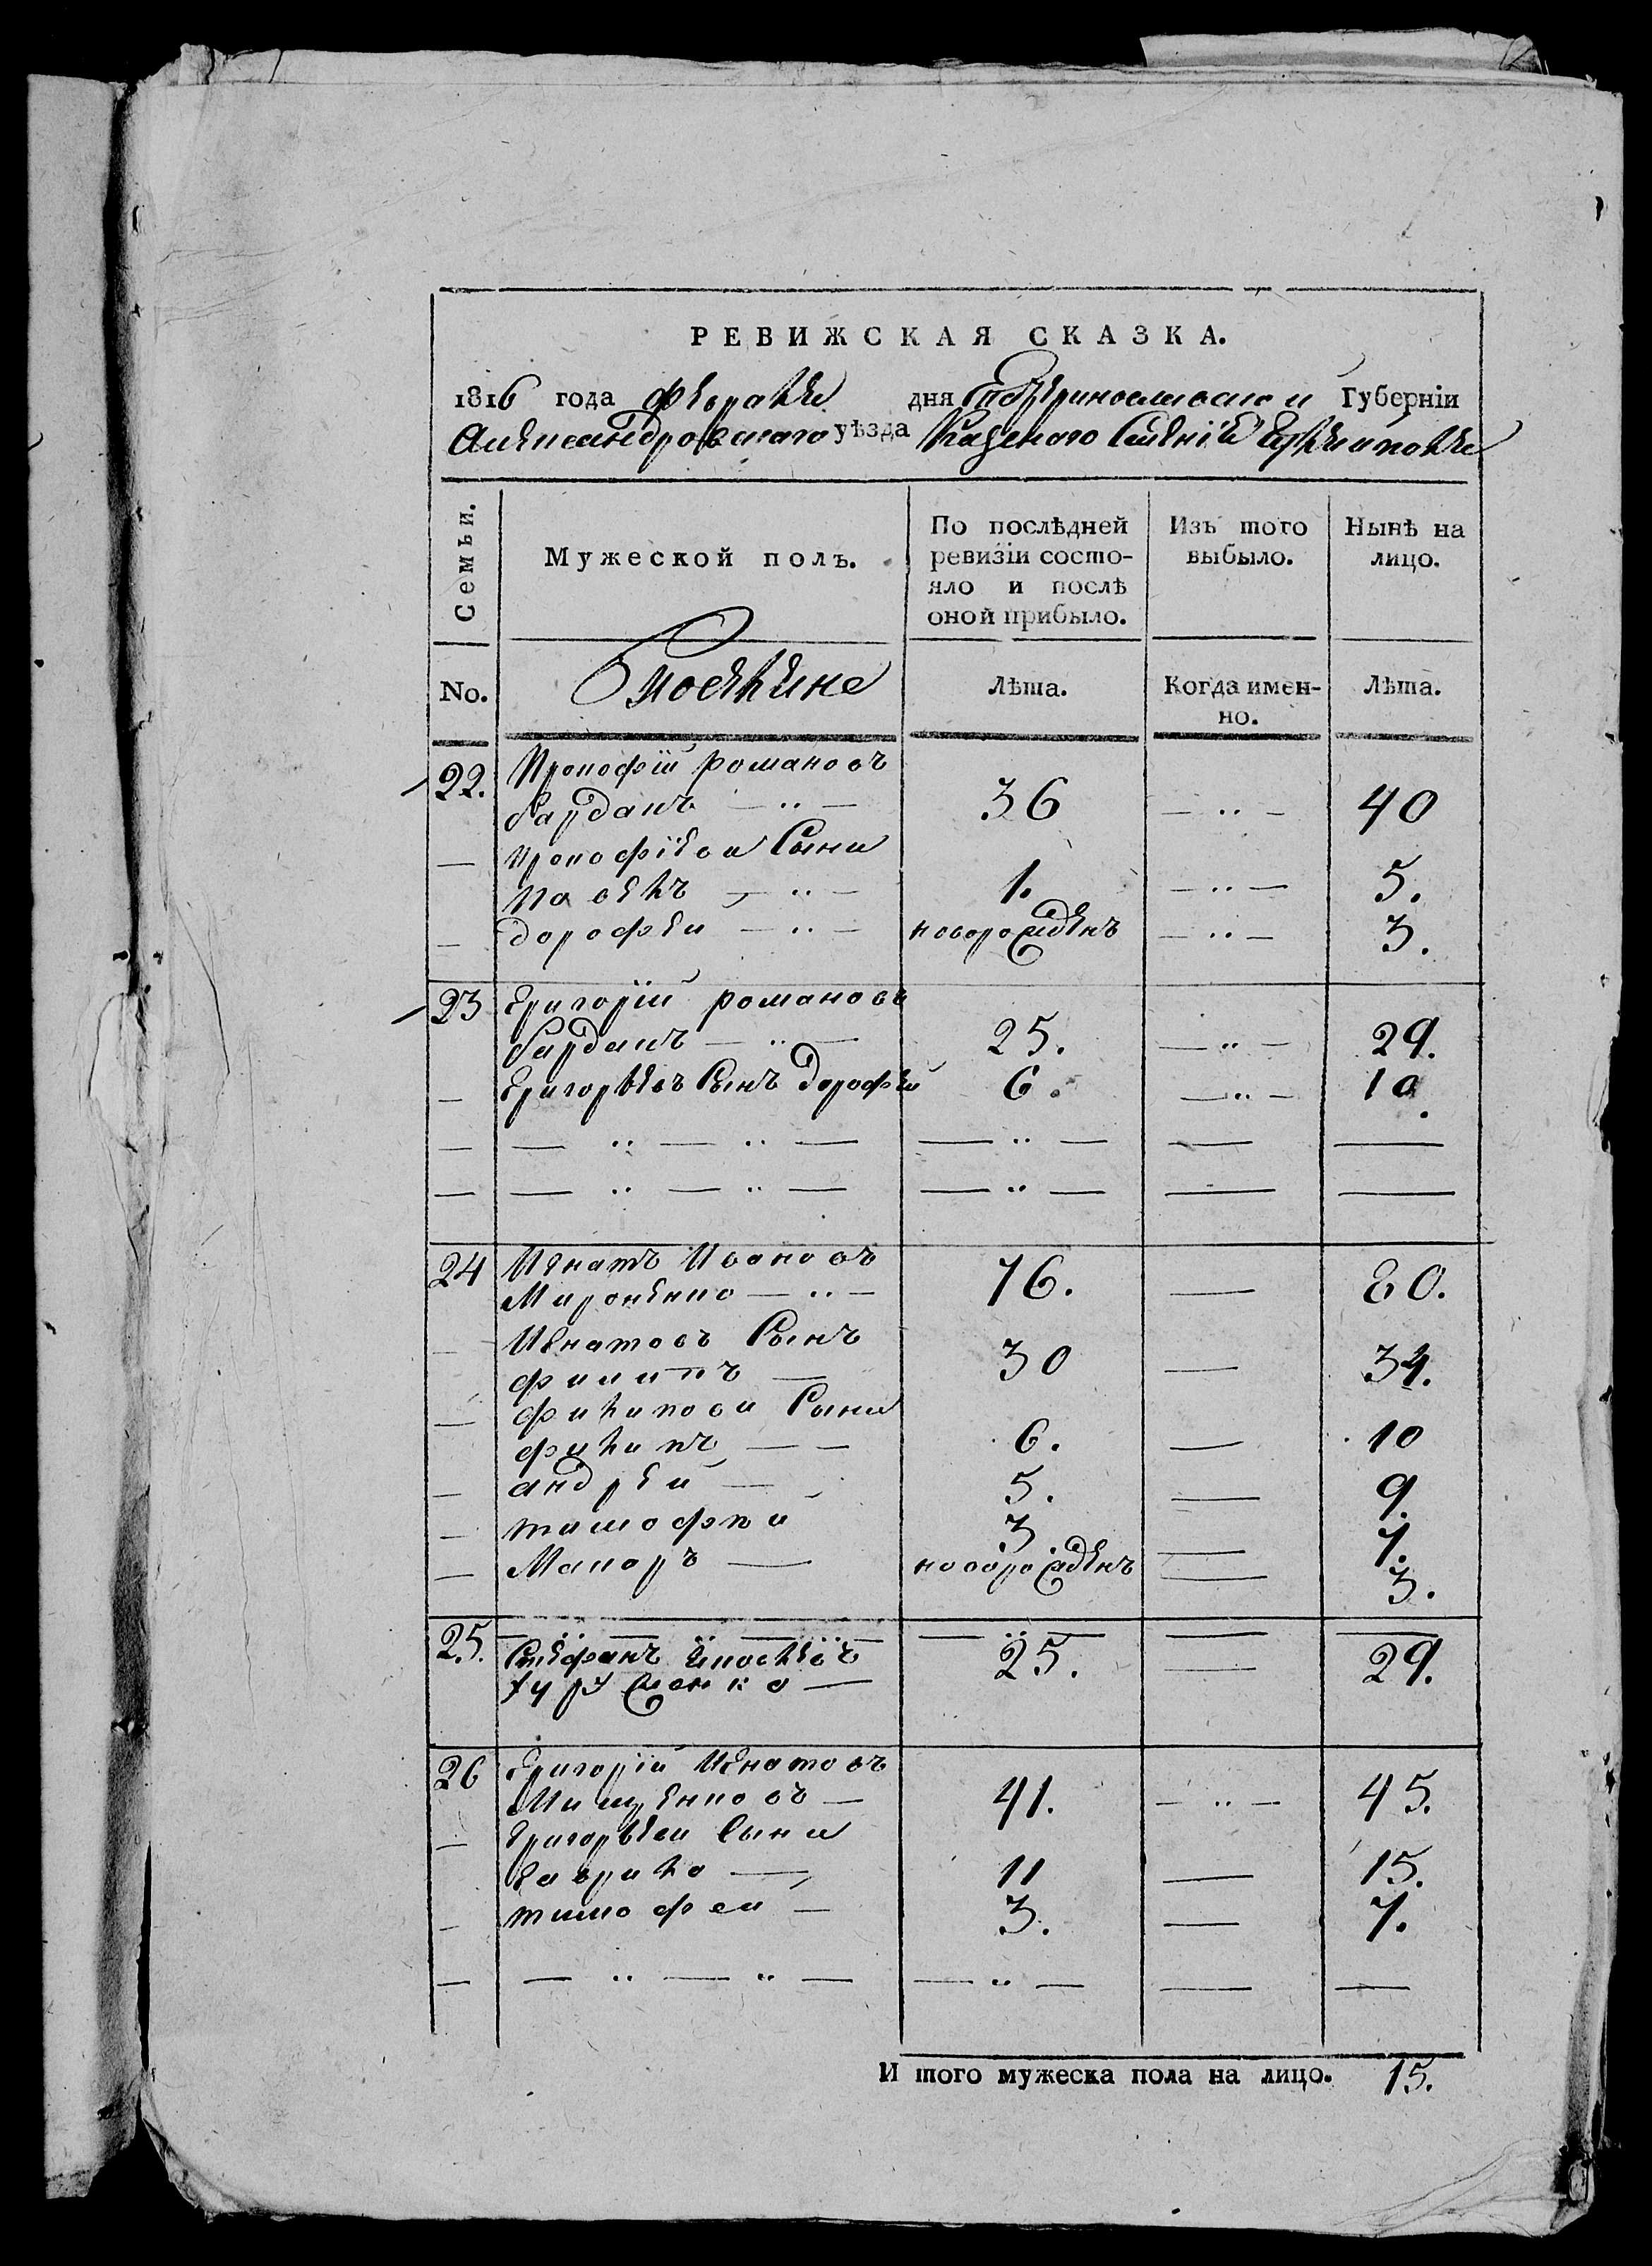 РЕВИЖСКАЯ СКАЗКА.
1816 года февраля дня Екатеринославской Губерніи
Александровскаго уѣзда Казенного Селенія
Семьи. Мужеской полъ. По послѣдней ревизіи состо- яло и послѣ оной прибыло. Изъ того выбыло. Нынѣ на лицо.
No. Поселяне Лѣта. Когда имен- но. Лѣта.
22. Прокофій романовъ
барданъ — .. — 36 — .. — 40
— прокофіеви Сыни
павелъ — .. — 1. — .. — 5.
— дорофеи — .. — новорожденъ — .. — 3.
23 григорій романовъ
барданъ — .. — 25. — .. — 29.
— григорьевъ Сынъ дорофей 6. — .. — 10.
— — .. — .. — — .. — — —
— — .. — .. — — .. — — —
24 Игнатъ Ивановъ
Мироненко — .. — 76. — 80.
— Игнатовъ Сынъ
филипъ — 30 — 34.
— филипови Сыни
филипъ — — 6. — 10
— андрей — 5. — 9.
— тимофей 3. — 7.
— Макаръ — новорожденъ — 3.
25. — .. — .. — .. — — .. — — —
Стефанъ 25. — 29.
26 григорій Игнатовъ
41. — .. — 45.
— григорьеви Сыни
гаврило — 11 — 15.
— тимофеи — 3. — 7.
— — .. — .. — — .. — — —
И того мужеска пола на лицо. 15.